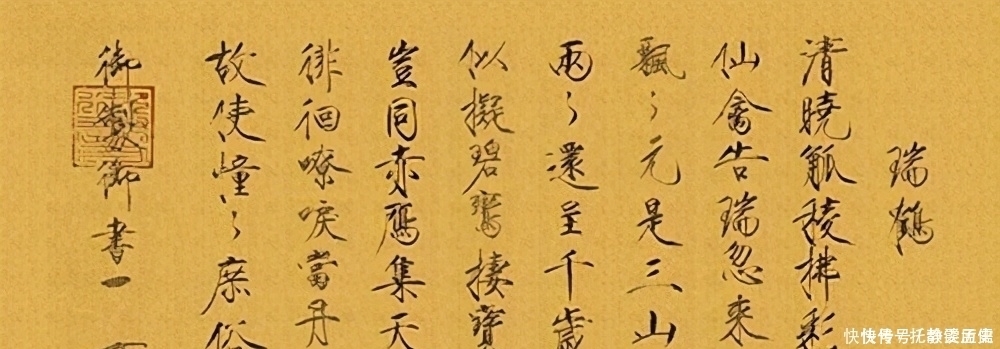 瑞鶴
清曉觚稜拂彩
仙禽告瑞忽來
飄々元是三山
兩々還呈千歲
似擬碧鸞棲寶
豈同赤鴈集天
徘徊嘹唳當丹
故使憧々庶俗
御製御書一